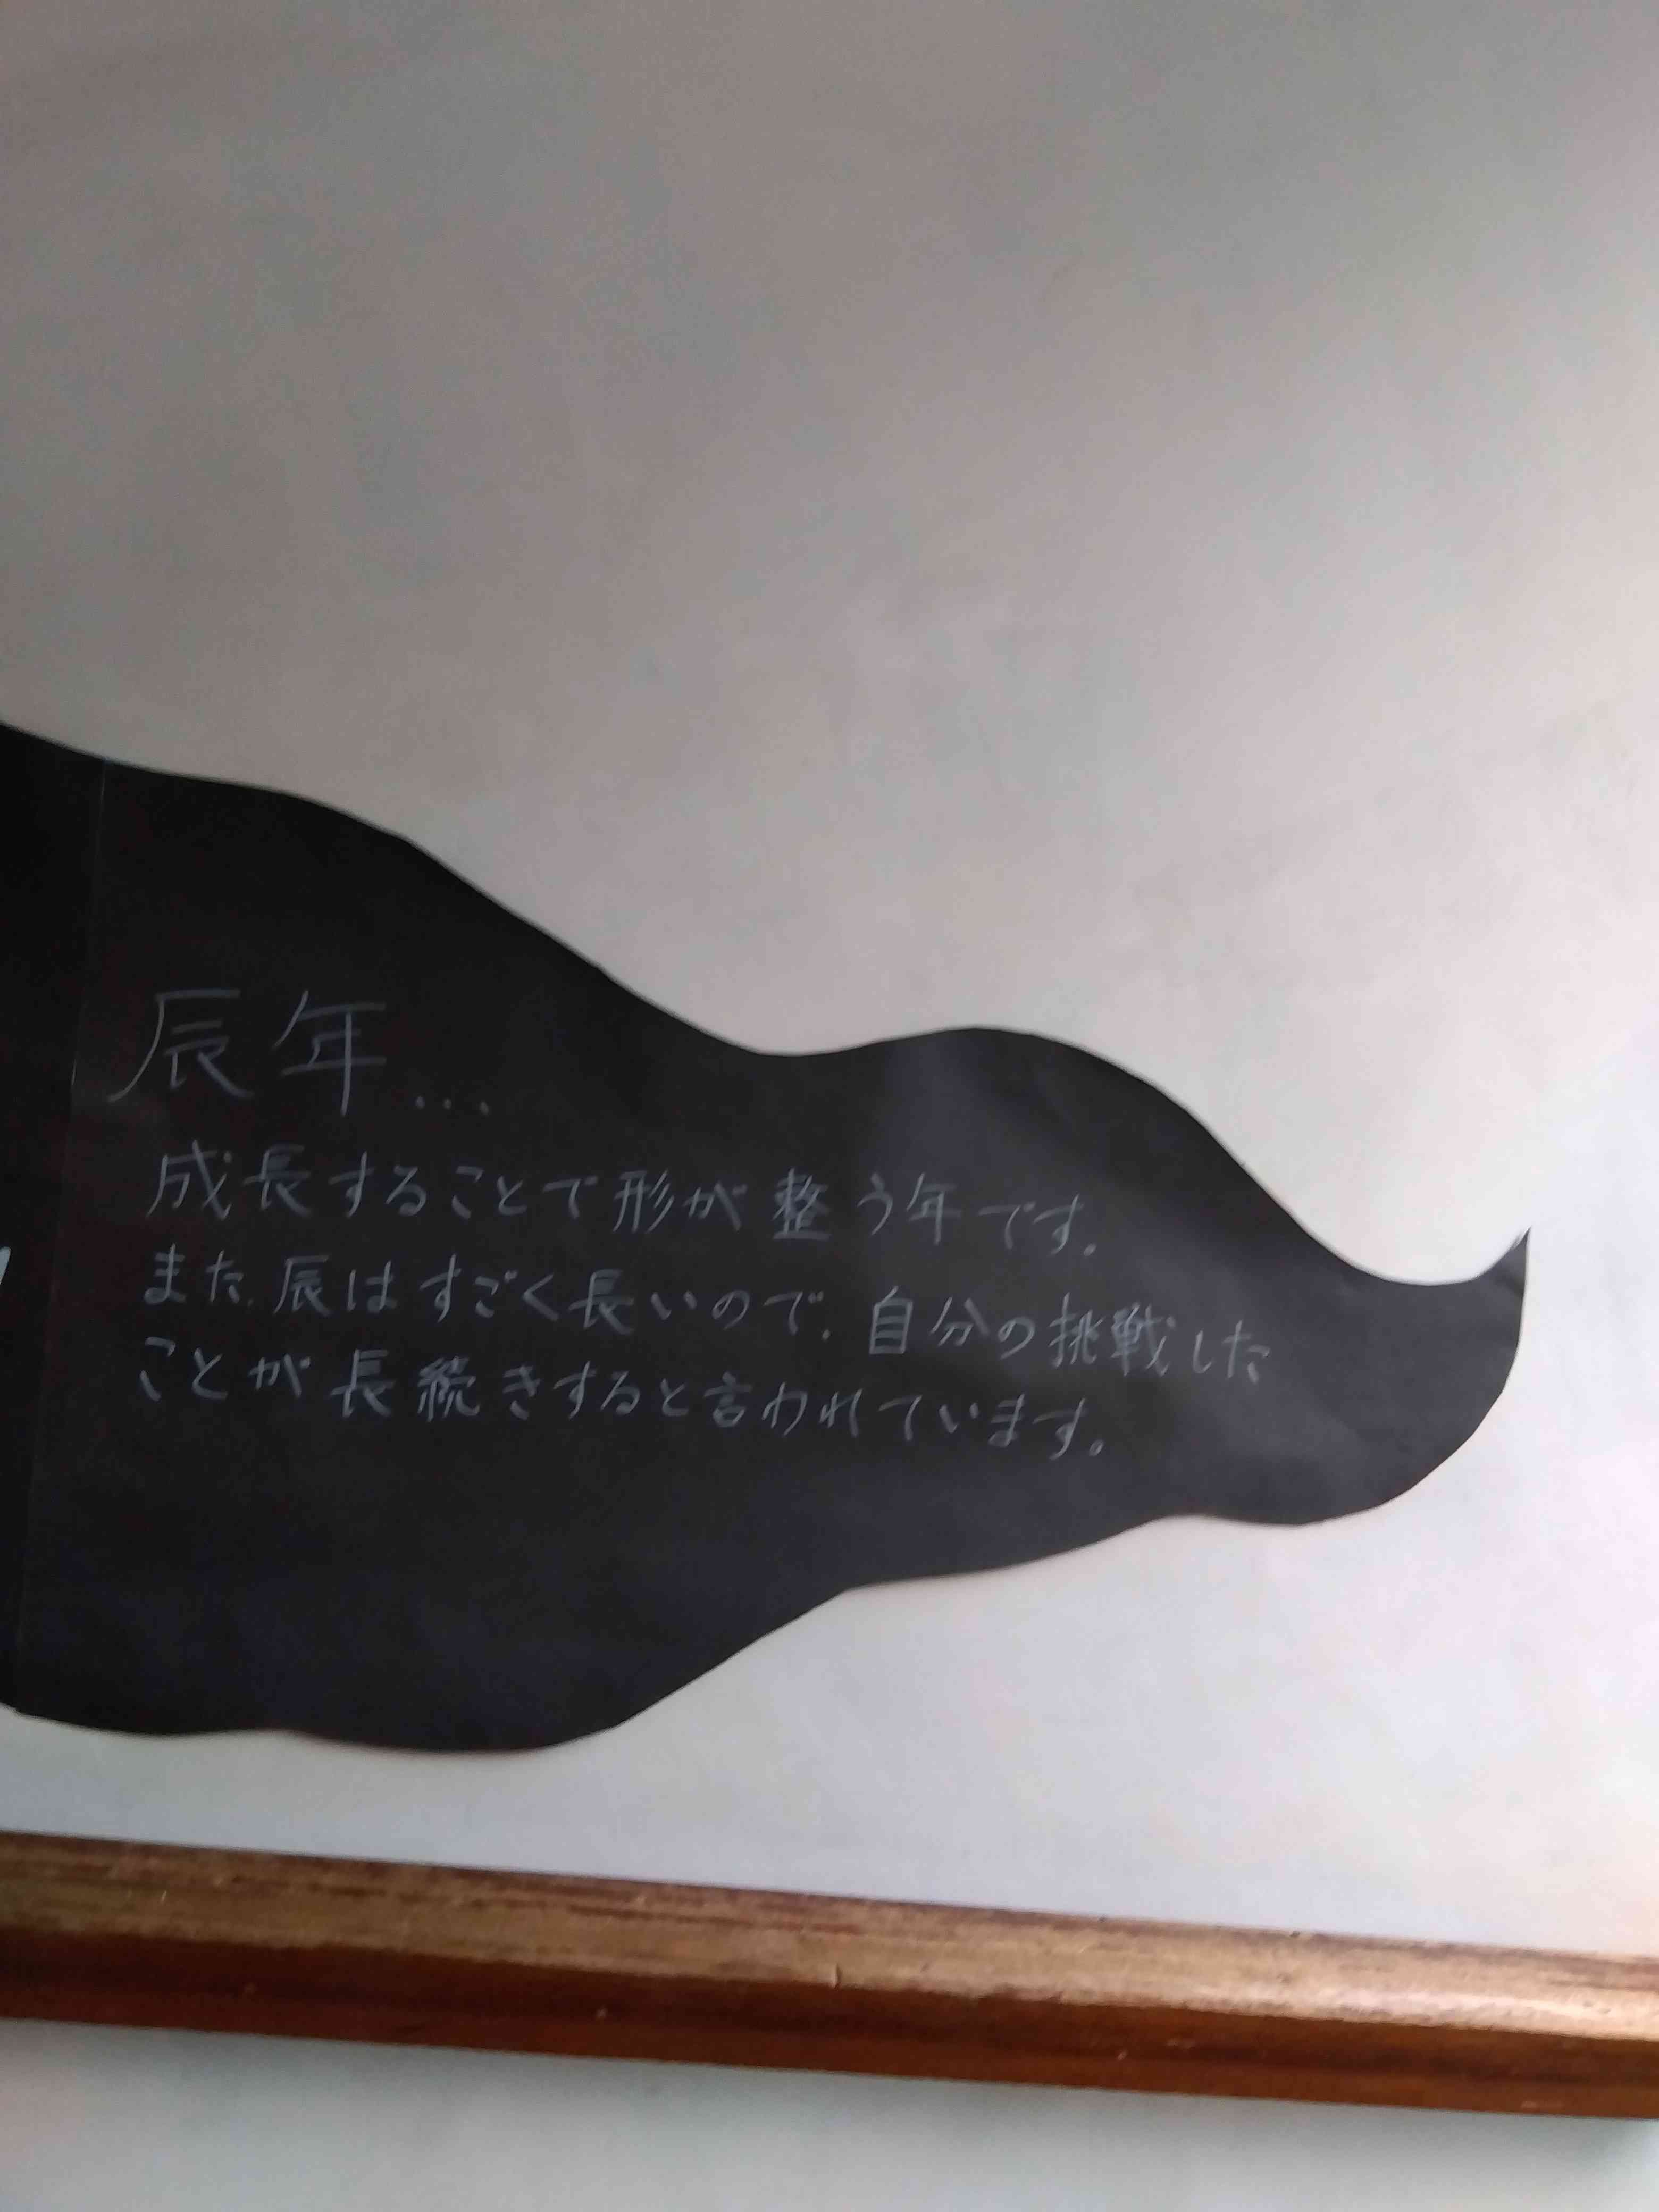 辰年...
成長することで形が整う年です。
また、辰はすごく長いので、自分の挑戦した
ことが長続きすると言われています。